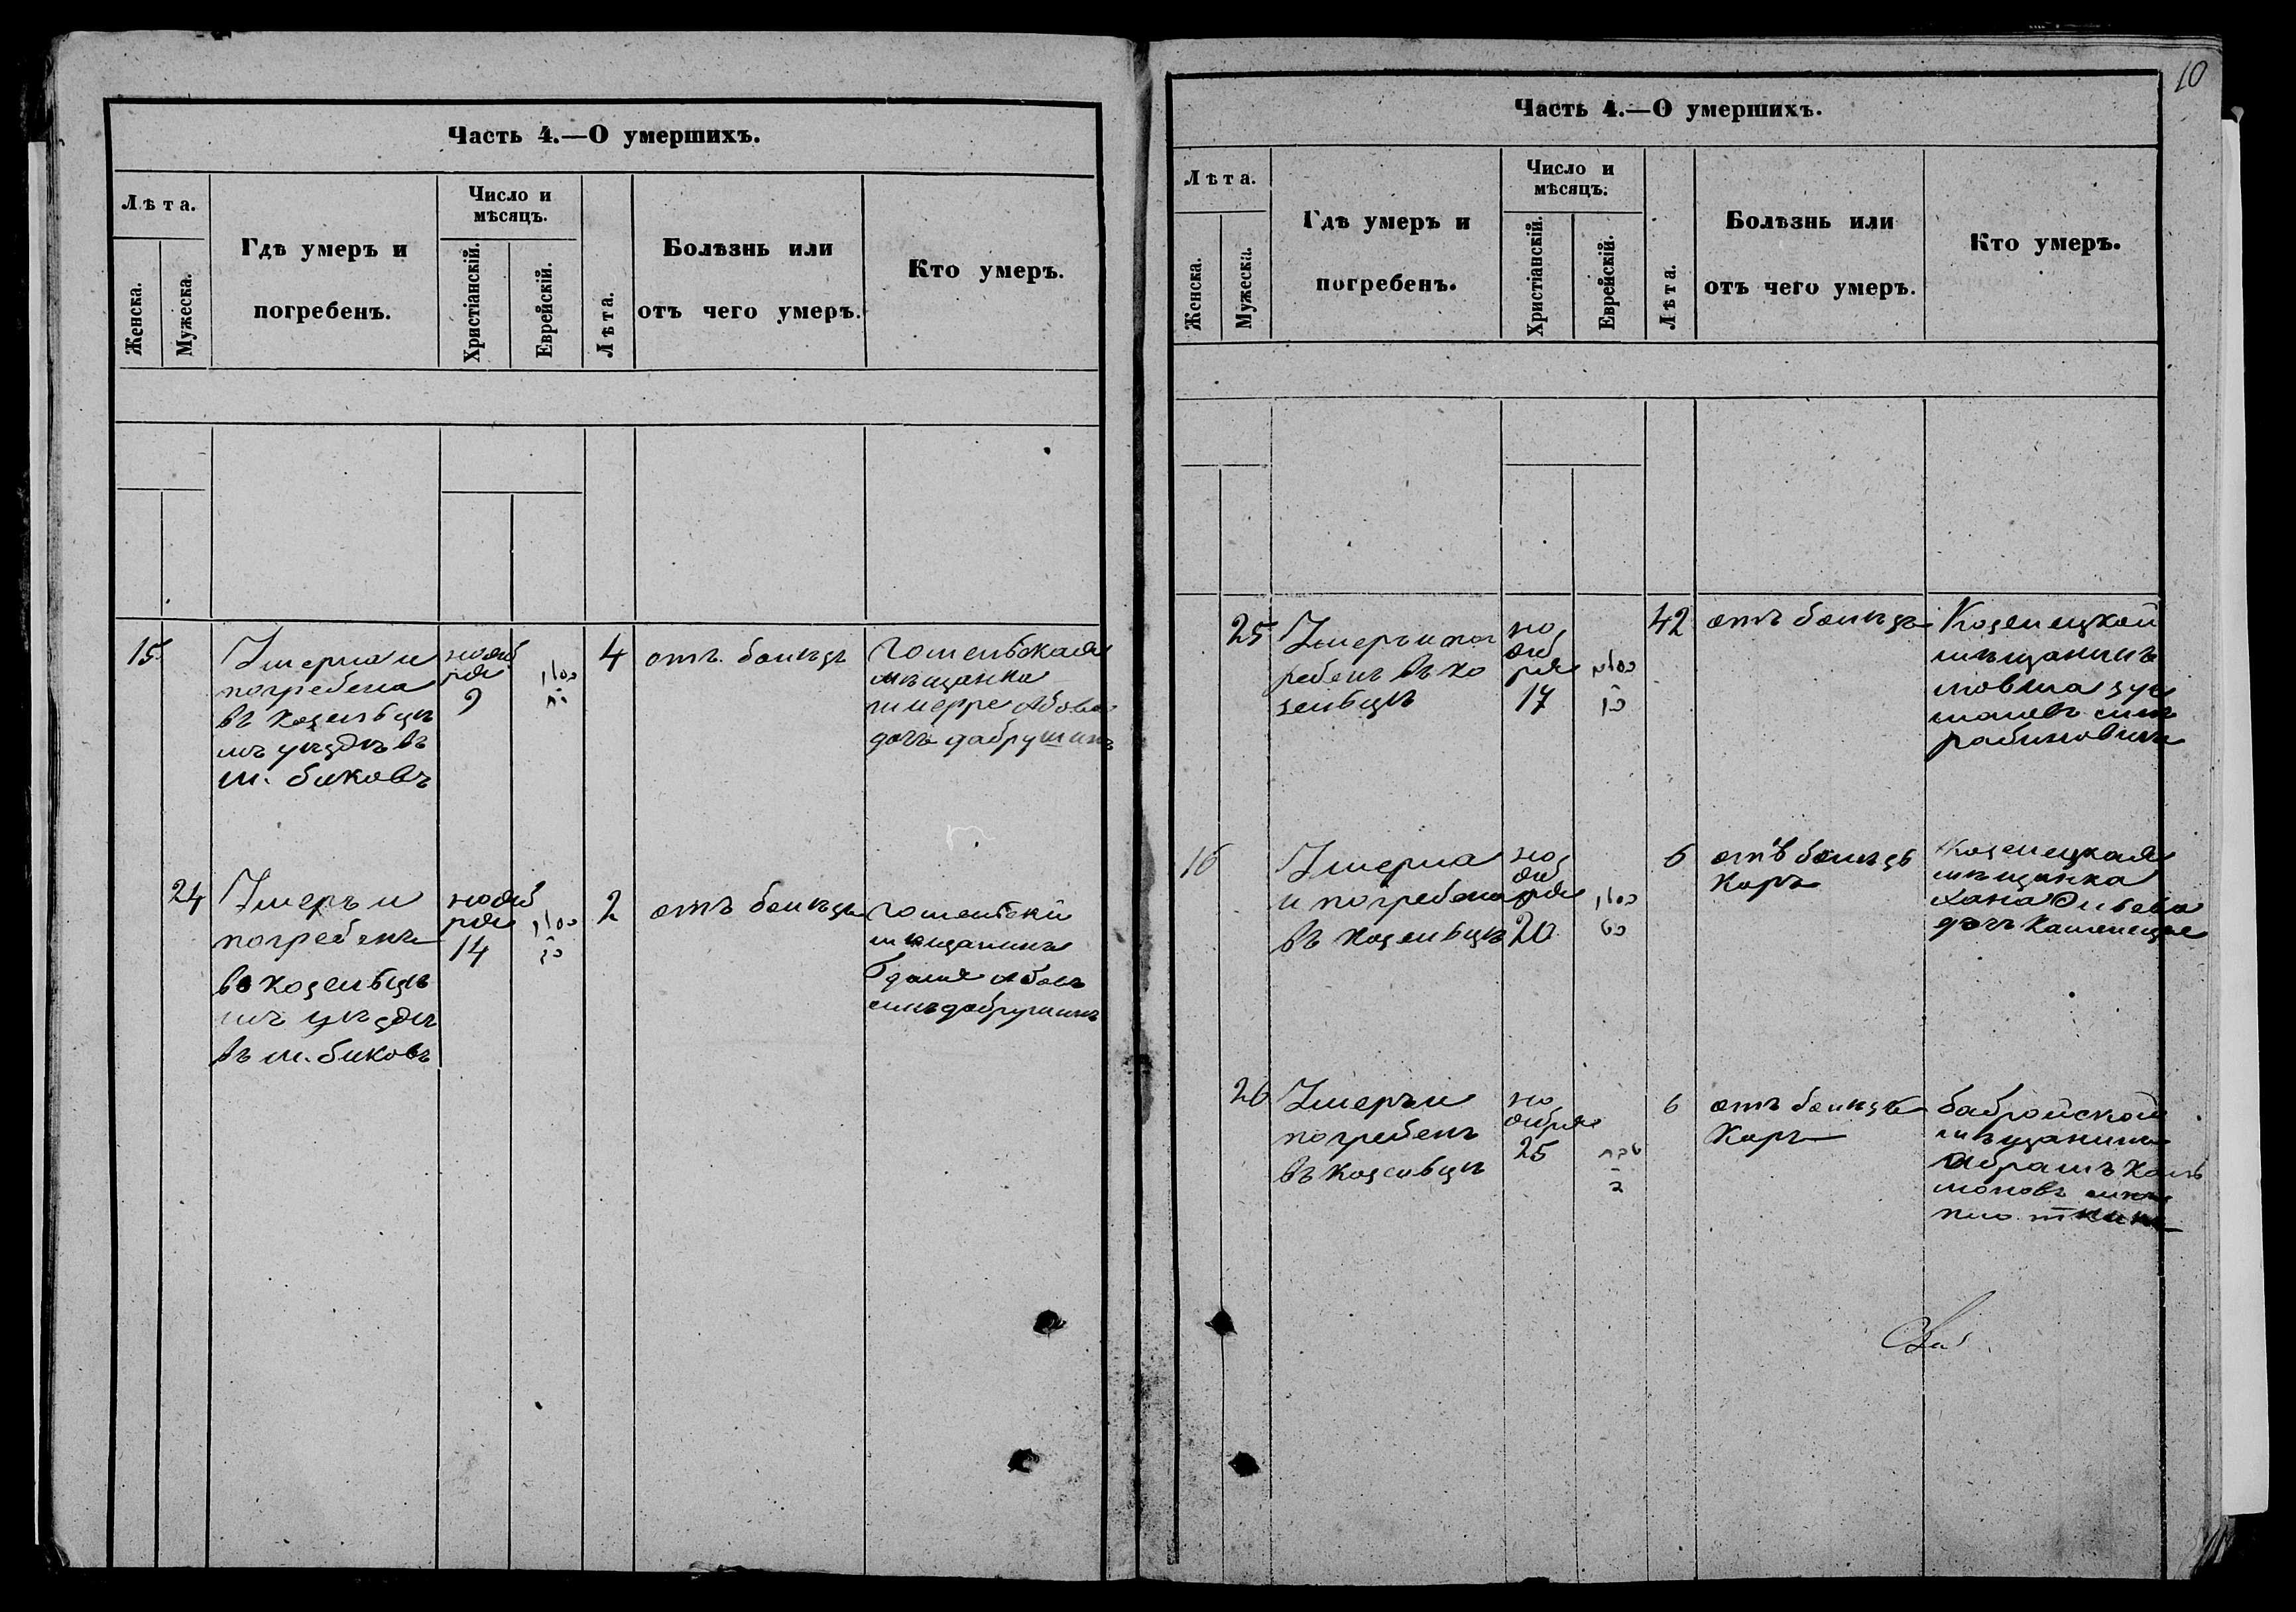 10
Часть 4.—О умершихъ.
Лѣта.
Женска.
Мужеска.
Гдѣ умеръ и
погребенъ.
Число и
мѣсяцъ.
Христіанскій.
Еврейскій.
Лѣта.
Болѣзнь или
отъ чего умеръ.
Кто умеръ.
15
Умерла и
погребена
въ Козельцк
мъ уѣздѣ въ
м. биковъ
нояб
ря
9
4
отъ болѣзь
гомельская
мѣщанка
Абова
дочъ дабрушинъ
24
Умеръ и
погребенъ
въ козельцк
мъ уѣздѣ
въ м. биковъ
нояб
ря
14
2
отъ болѣзь
гомелскій
мѣщанинъ
Абовъ
синъ добрушинъ
Часть 4.—О умершихъ.
Лѣта.
Женска.
Мужеска.
Гдѣ умеръ и
погребенъ.
Число и
мѣсяцъ.
Христіанскій.
Еврейскій.
Лѣта.
Болѣзнь или
отъ чего умеръ.
Кто умеръ.
25
Умеръ и пог
ребенъ въ ко
зельцѣ
но
яб
ря
17
42
отъ болѣзь
Козелецкой
мѣщанинъ
мовша зус
мановъ синъ
рабиновичъ
16
Умерла
и погребена
въ козельцѣ
но
яб
ря
20
6
отъ болѣзь
Коръ
Козелецкая
мѣщанка
Хана
дочъ
26
Умеръ и
погребенъ
въ козельцѣ
но
ября
25
6
отъ болѣзь
Коръ
бабройской
мѣщанинъ
Абрамъ Кал
моновъ синъ